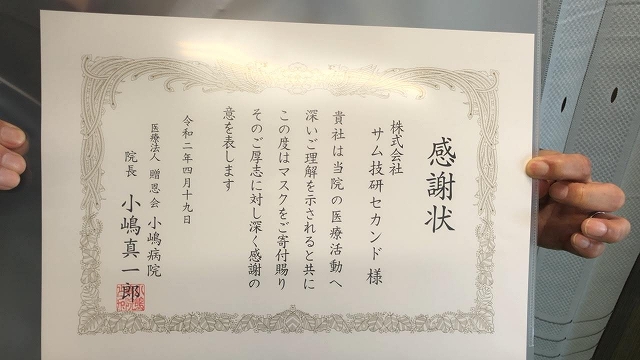 感謝状
株式会社
サム技研セカンド 様
貴社は当院の医療活動へ
深いご理解を示されると共に
この度はマスクをご寄付賜り
そのご厚志に対し深く感謝の
意を表します
令和二年四月十九日
医療法人 贈恩会 小嶋病院
院長 小嶋真一郎